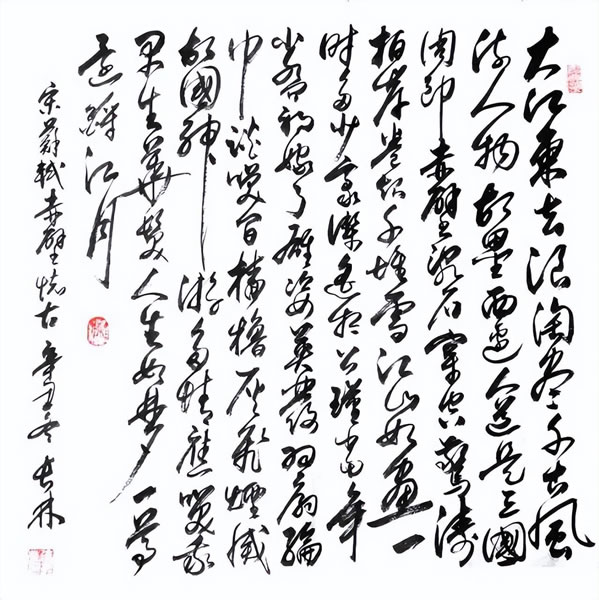 大江東去浪淘盡千古風
流人物故壘西邊人道是三國
周郎赤壁亂石穿空驚濤
拍岸卷起千堆雪江山如畫一
時多少豪傑遙想公瑾當年
小喬初嫁了雄姿英發羽扇綸
巾談笑間檣櫓灰飛煙滅
故國神游多情應笑我
早生華髮人生如夢一尊
還酹江月
宋蘇軾赤壁懷古辛丑冬長林